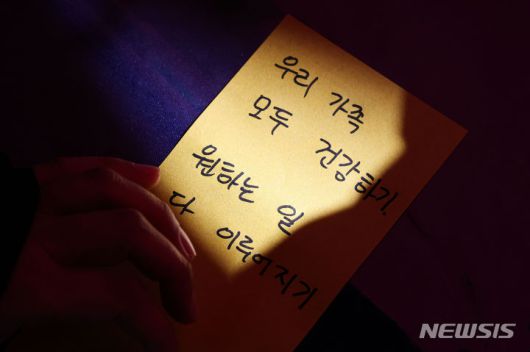 우리 가족
모두 건강하기.
원하는 일
다 이루어지기
NEWSIS